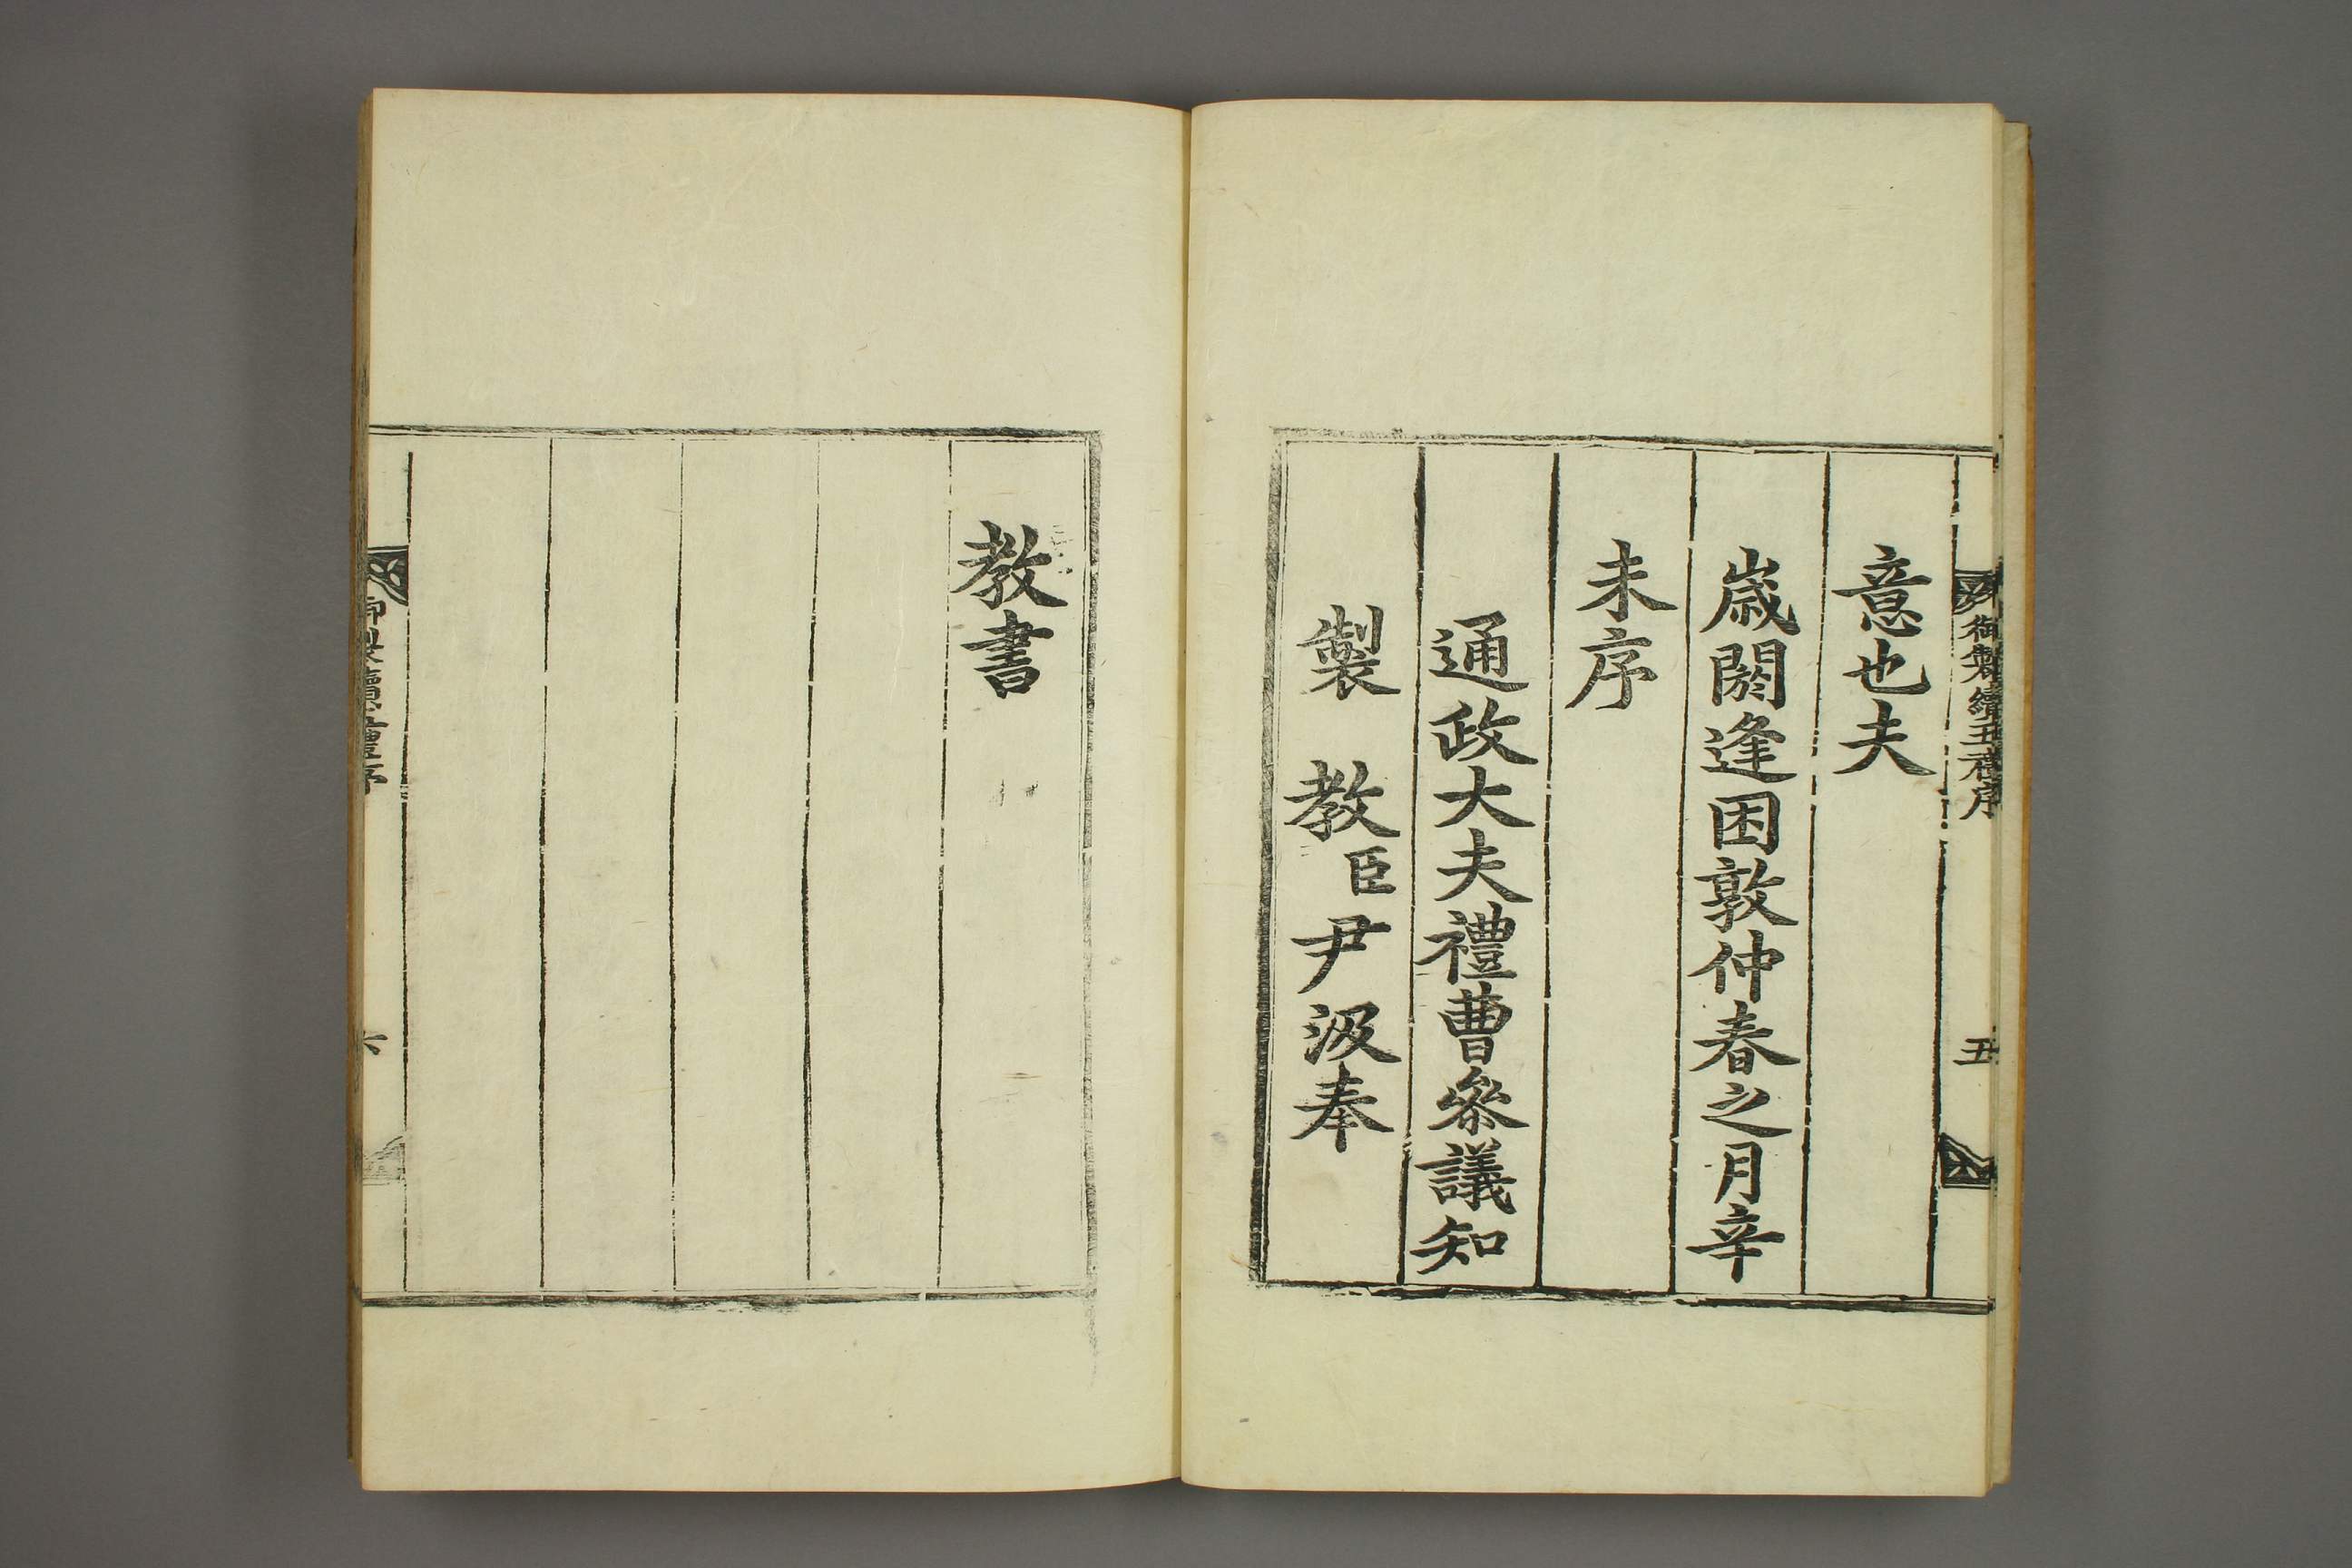 御製續五禮序
五
意也夫
歲閼逢困敦仲春之月辛
未序
通政大夫禮曹參議知
製 教臣尹汲奉
教書
御製續五禮序
六